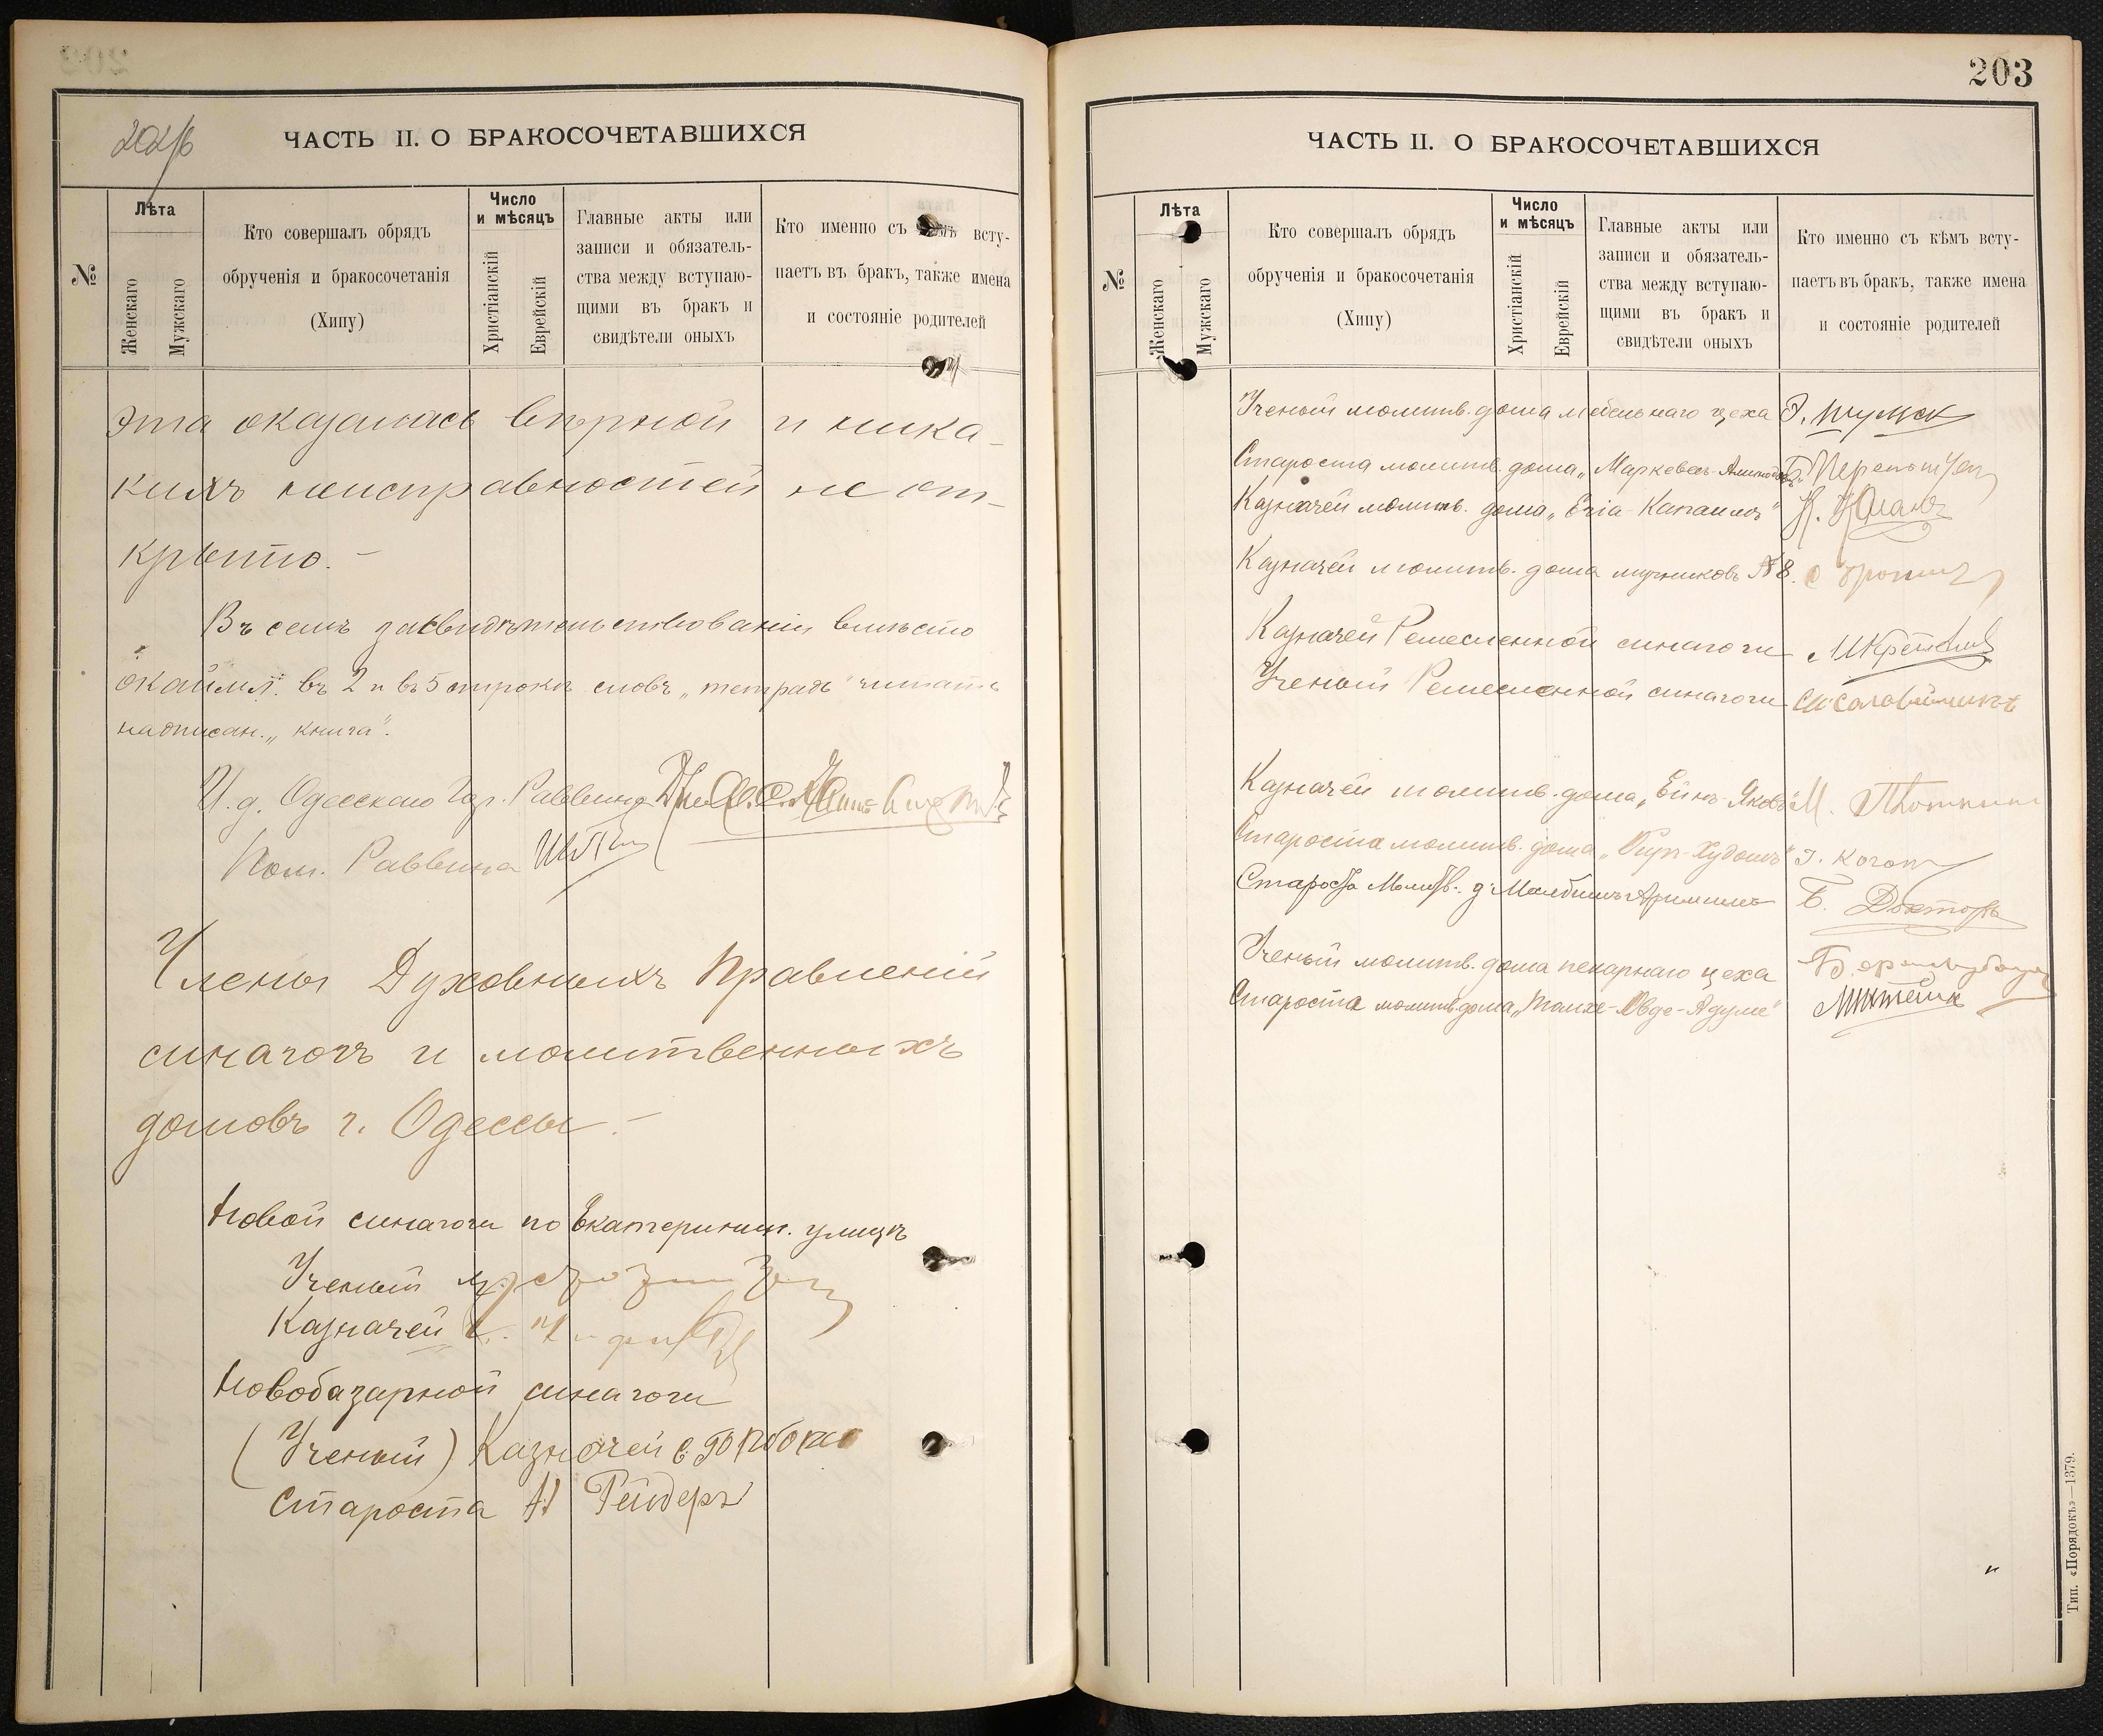 ЧАСТЬ II. О БРАКОСОЧЕТАВШИХСЯ
№
Лѣта
Женскаго
Мужскаго
Кто совершалъ обрядъ
обрученія и бракосочетанія
(Хипу)
Число
и мѣсяцъ
Христіанскій
Еврейскій
Главные акты или
записи и обязатель-
ства между вступаю-
щими въ бракъ и
свидѣтели оныхъ
Кто именно съ всту-
паетъ въ бракъ, также имена
и состояніе родителей
эта оказалась вѣрной и ника-
кихъ неисправностей не от-
крыто. –
Въ семъ засвидѣтельствованіи вмѣсто
окаймл. въ 2 и въ 5 строкѣ словъ „тетрадь" читать
надписан. „книга".
И. д. Одесскаго Гор. Раввина
Пом. Раввина
Члены Духовныхъ Правленій
синагогъ и молитвенныхъ
домовъ г. Одессы. –
Новой синагоги по Екатеринин. улицѣ
Ученый
Казначей
Новобазарной синагоги
(Ученый) Казначей
Староста Н Рейдеръ
203
ЧАСТЬ II. О БРАКОСОЧЕТАВШИХСЯ
№
Лѣта
Женскаго
Мужскаго
Кто совершалъ обрядъ
обрученія и бракосочетанія
(Хипу)
Число
и мѣсяцъ
Христіанскій
Еврейскій
Главные акты или
записи и обязатель-
ства между вступаю-
щими въ бракъ и
свидѣтели оныхъ
Кто именно съ кѣмъ всту-
паетъ въ бракъ, также имена
и состояніе родителей
Ученый молитв. дома мебельнаго цеха
Староста молитв. дома
Казначей молитв. дома
Казначей молитв. дома мучниковъ № 8.
Казначей Ремесленной синагоги
Ученый Ремесленной синагоги
Казначей молитв. дома „Ейнъ-Яковъ" М.
Староста молитв. дома Коган
Староста Молитв. д. Б. Докторъ
Ученый молитв. дома пекарнаго цеха
Староста молитв. дома
Тип. «Порядокъ»—1379.